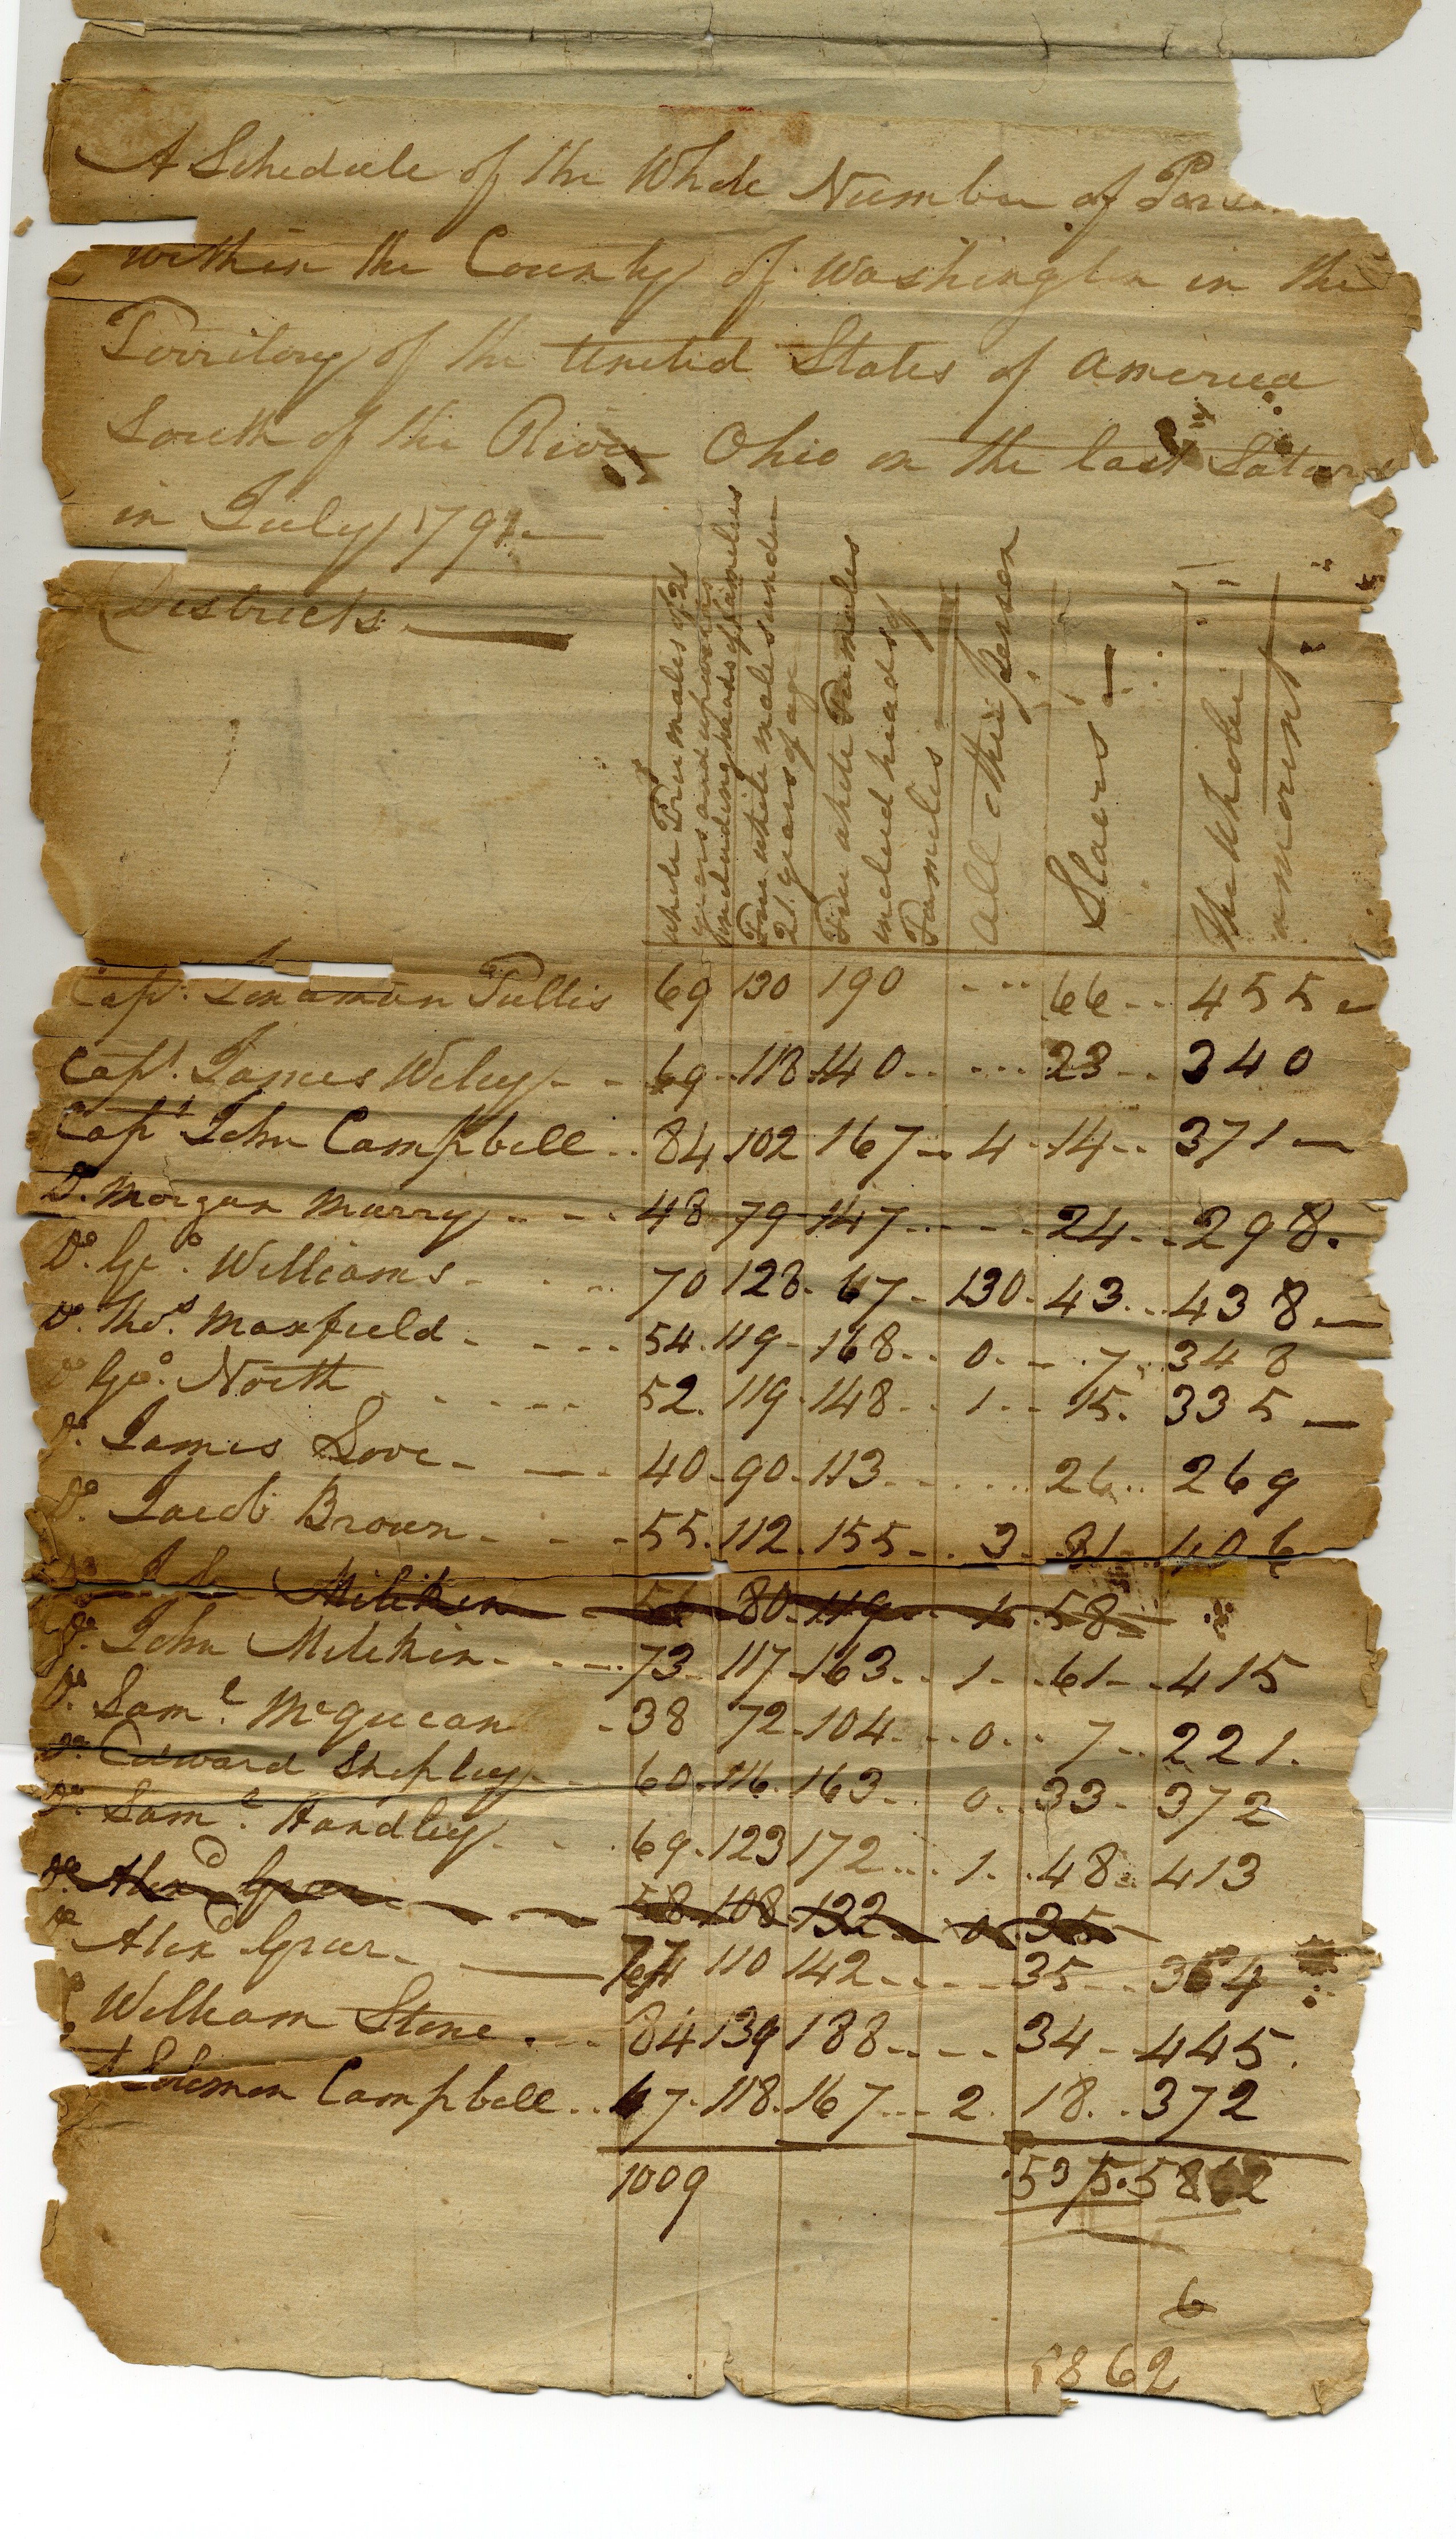 A Schedule of the Whole Number of Perso
within the County of Washington in the
Territory of the United States of America
South of the River Ohio on the last Satur
in July 1791
Districts
white Free males of 21
years and upwards
including heads of families
Free white males under
21 years of age
Free white Females
includ heads of
Families
All other person
Slaves
The whole
amount
Capt. Tullis 69 130 190 66 455
Capt. James Wiley 69 118 140 23 340
Capt John Campbell 84 102 167 4 14 371
Do. Morgan Murry 48 79 147 24 298.
Do. Geo. Williams 70 128 67 130 43 438
Do. Thos. Maxfield 54 119 168 0 7 348
Do Geo. North 52 119 148 1 15 335
Do. James Love 40 90 113 26 269
Do. Jacob Brown 55 112 155 3 81 406
Do Milikin 80 119 1 58
Do. John Milikin 73 117 163 1 61 415
Do. Saml. McQueean 38 72 104 0 7 221.
Do. Edward Shipley 60 116 163 0 33 372
Do. Saml. Handley 69 123 172 1 48 413
Do. Alexd Greer 58 108 122 0 35
Do Alexd Greer 77 110 142 35 364
William Stone 84 139 188 34 445.
Solomon Campbell 67 118 167 2 18 372
1009 535 5862
6
5862